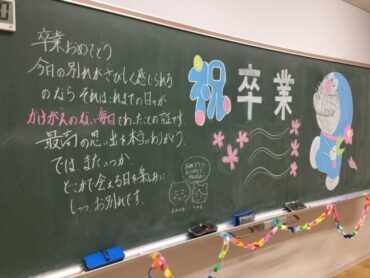 卒業おめでとう
今日の別れがさびしく感じられる
のなら それは、これまでの日々が
かけがえのない毎日であったことの証です。
最高の思い出を本当にありがとう
では、またいつか
どこかで会える日を楽しみに
しつつ、お別れです。
祝卒業
おめでとう